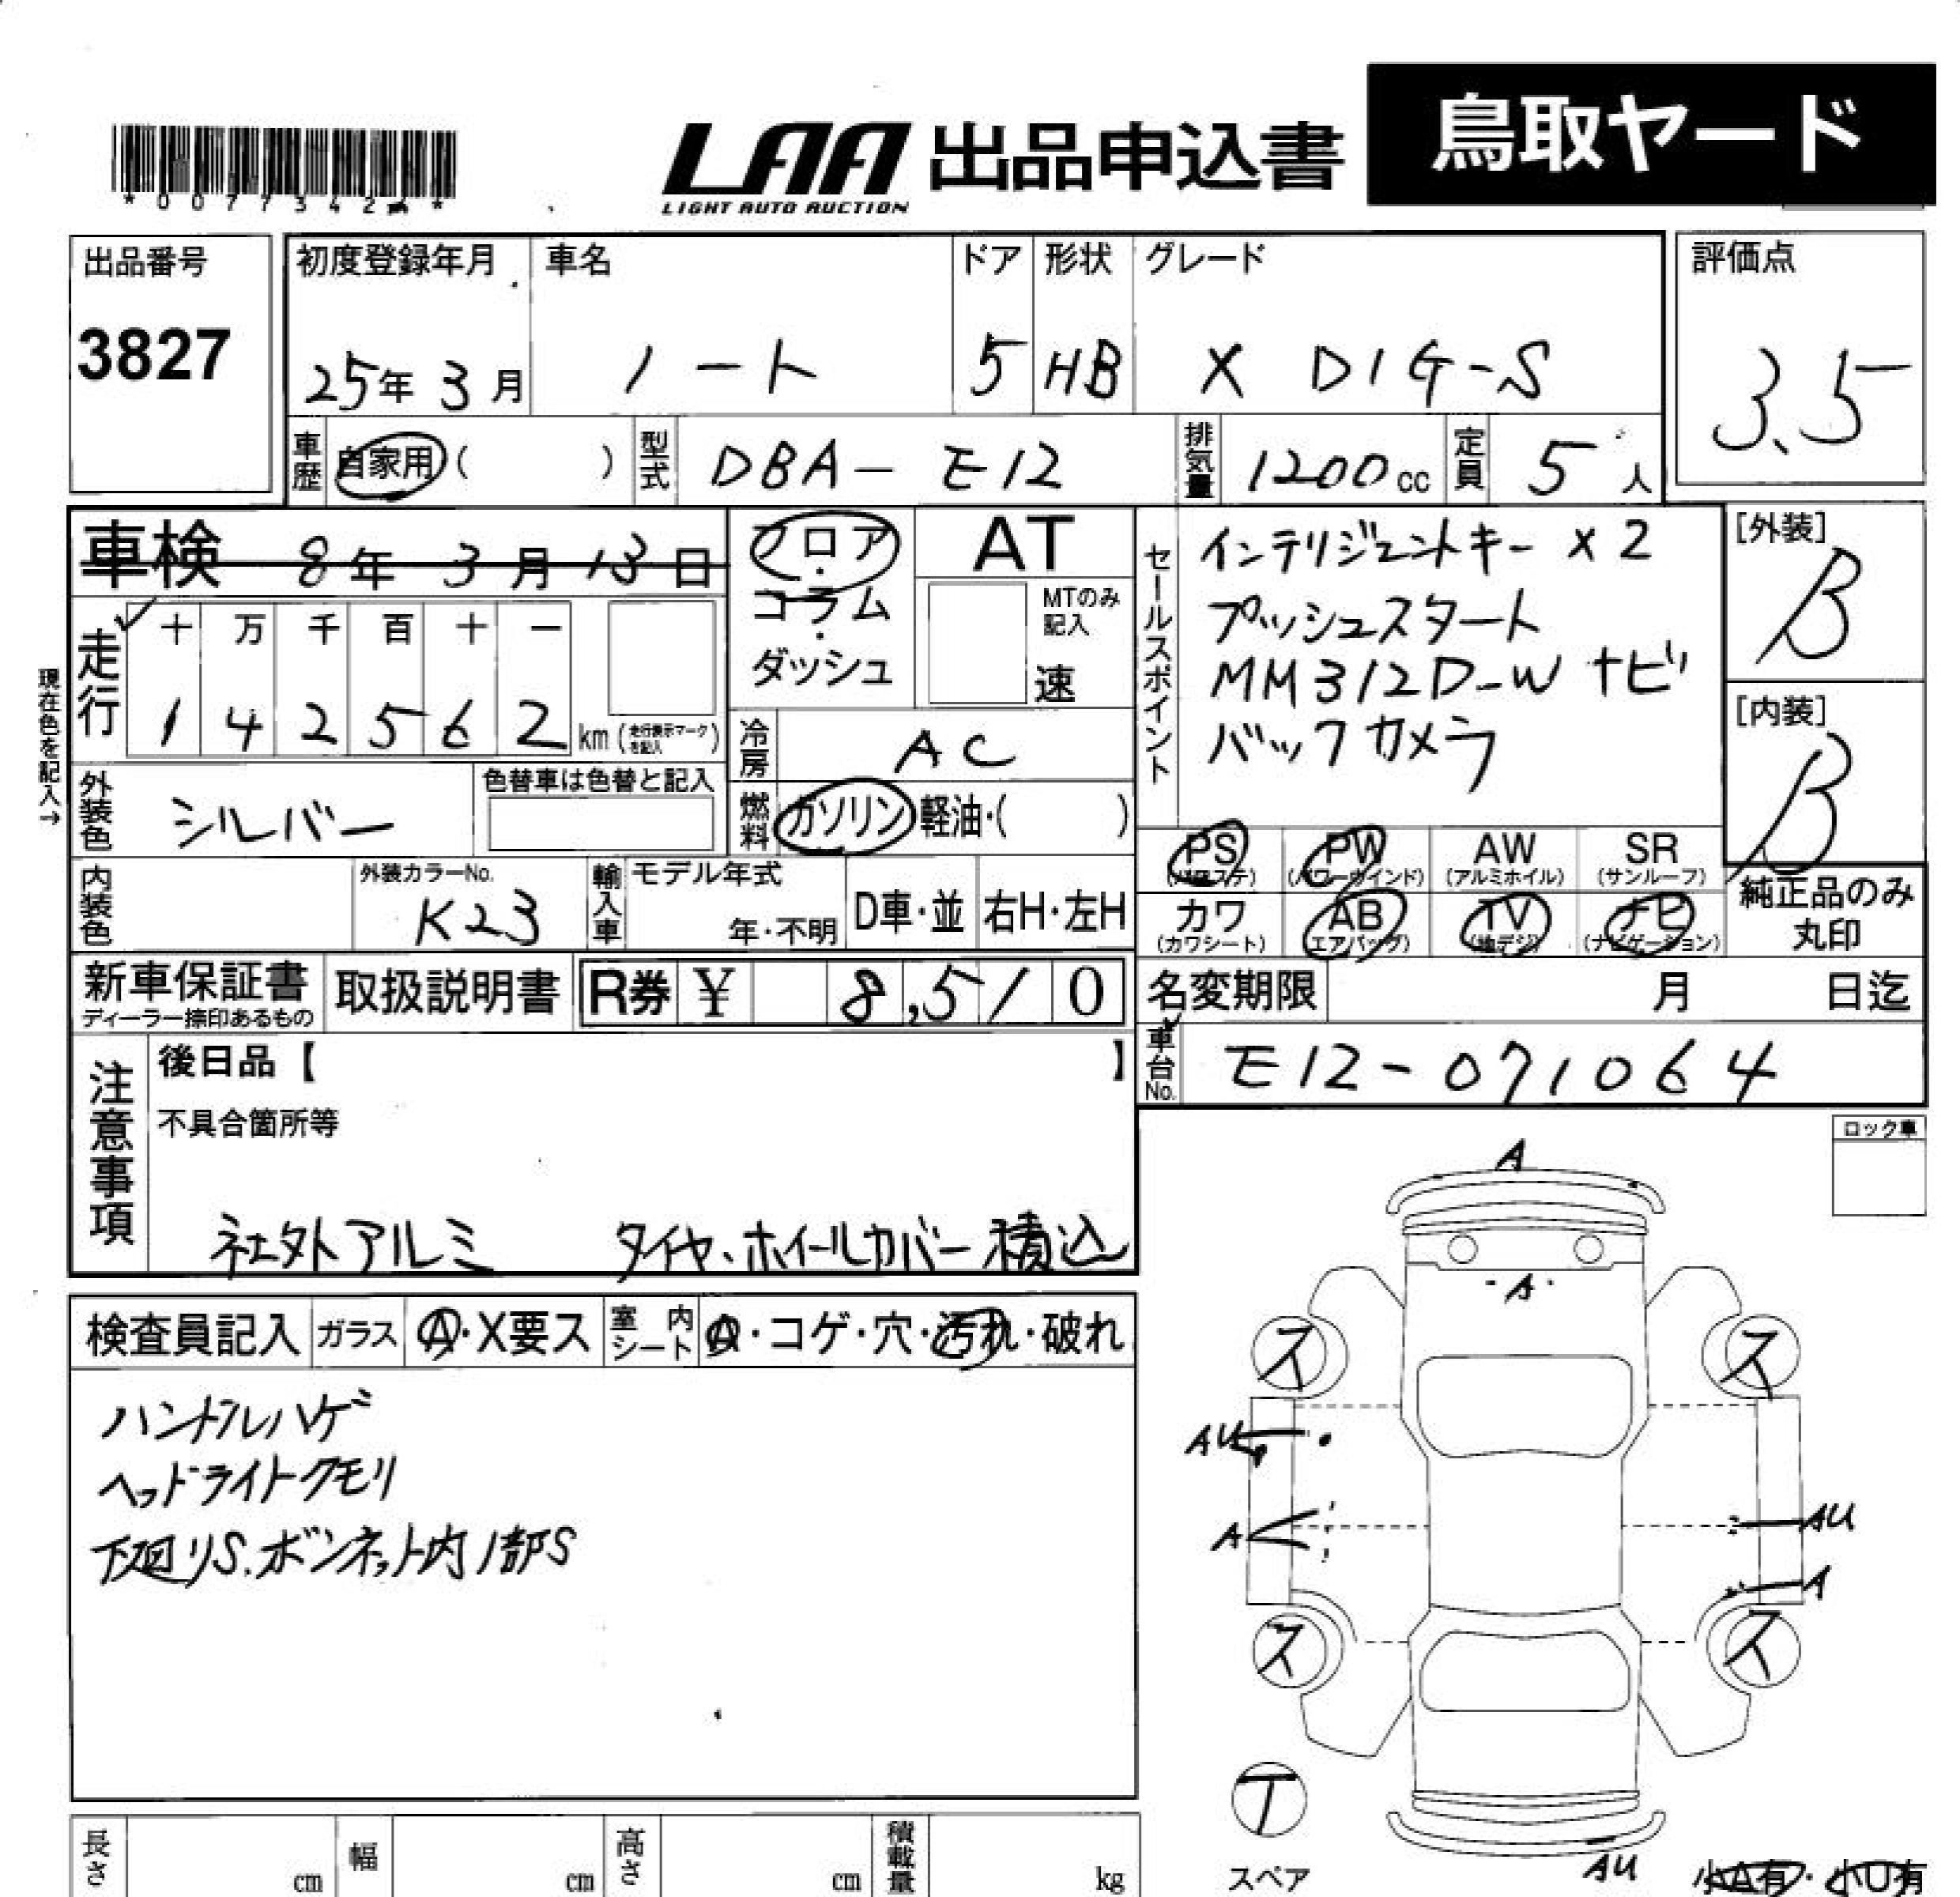 *0077342*
LAA 出品申込書 鳥取ヤード
LIGHT AUTO AUCTION
出品番号 初度登録年月 車名 ドア 形状 グレード 評価点
3827 25年 3月 ノート 5 HB X DIG-S 3.5
車歴 自家用( ) 型式 DBA-E12 排気量 1200cc 定員 5人
車検 8年 3月 13日
フロア・コラム・ダッシュ
AT
MTのみ記入
速
セールスポイント
インテリジェントキー ×2
プッシュスタート
MM312D-W ナビ
バックカメラ
[外装]
B
[内装]
B
現在色を記入→
走行 十 万 千 百 十 一
1 4 2 5 6 2 km(走行表示マークを記入)
冷房 AC
外装色 シルバー 色替車は色替と記入
燃料 ガソリン・軽油・( )
内装色 外装カラーNo. K23 輸入車 モデル年式 年・不明 D車・並 右H・左H
PS(パワステ) PW(パワーウインド) AW(アルミホイル) SR(サンルーフ)
カワ(カワシート) AB(エアバッグ) TV(地デジ) ナビ(ナビゲーション)
純正品のみ丸印
新車保証書 ディーラー捺印あるもの 取扱説明書 R券 ¥ 8,510
名変期限 月 日迄
車台No. E12-071064
注意事項
後日品【 】
不具合箇所等
社外アルミ タイヤ、ホイールカバー積込
ロック車
検査員記入 ガラス A・X要ス 室内シート A・コゲ・穴・汚れ・破れ
ハンドルハゲ
ヘッドライトクモリ
下廻りS.ボンネット内1部S
A
A
ス ス
AU
A AU
A
ス ス
T
スペア
AU
小A有・小U有
長さ cm 幅 cm 高さ cm 積載量 kg